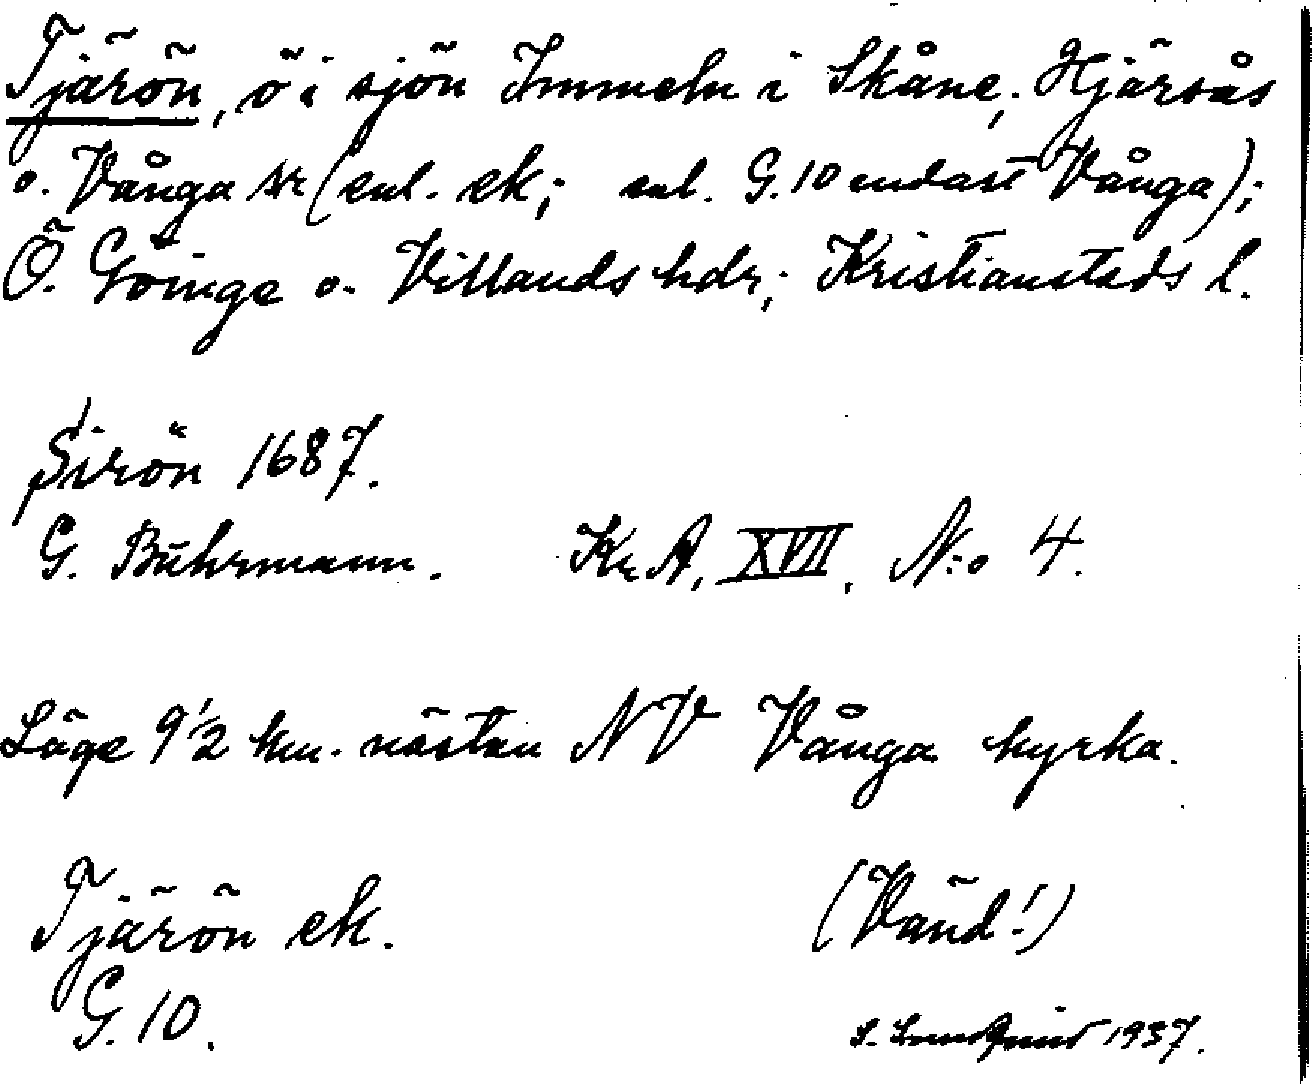 Tjärön, ö i sjön Immeln i Skåne; Hjärsås
o. Vånga sr (enl. ek; enl. G.10 endast Vånga);
Ö. Göinge o. Villands hdr; Kristianstads l.
Sirön 1687.
G. Buhrmann. Kr. A, XVII, N:o 4.
Läge 9 1/2 km. nästan NV Vånga kyrka.
Tjärön ek. (Vänd!)
G.10.
S. Lundqvist 1937.